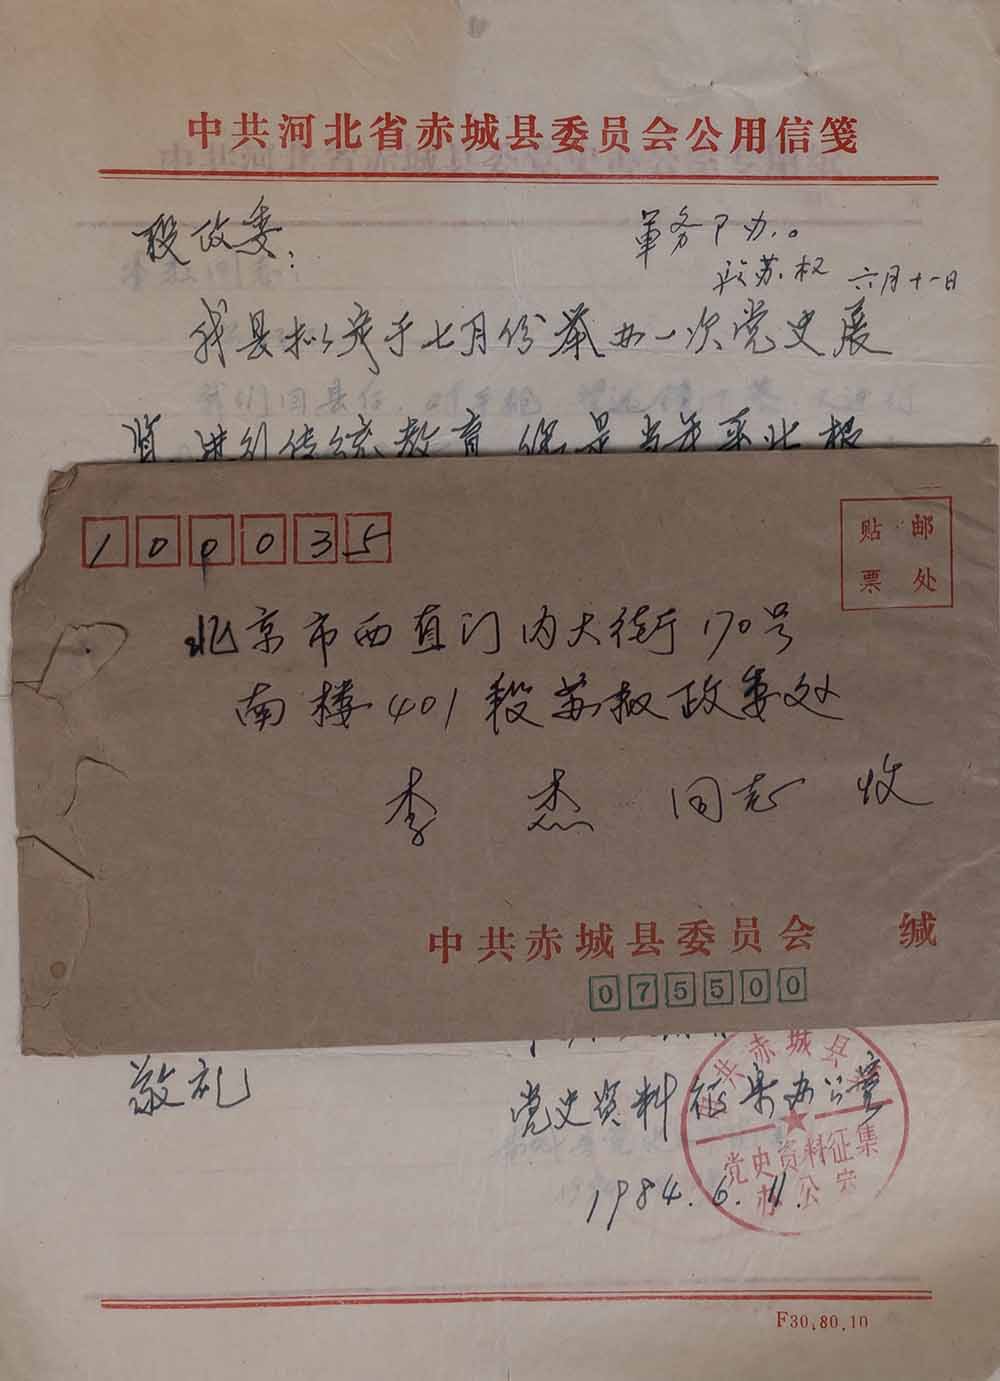 中共河北省赤城县委员会公用信笺
段政委：
军务下办。
段苏权 六月十一日
我县拟定于七月份举办一次党史展
览，进行传统教育，您是当年平北根
100035
贴邮
票处
北京市西直门内大街170号
南楼401段苏权政委处
李杰同志收
中共赤城县委员会 缄
075500
敬礼
党史资料征集办公室
1984.6.11.
中共赤城县
党史资料征集
办公室
F30.80.10